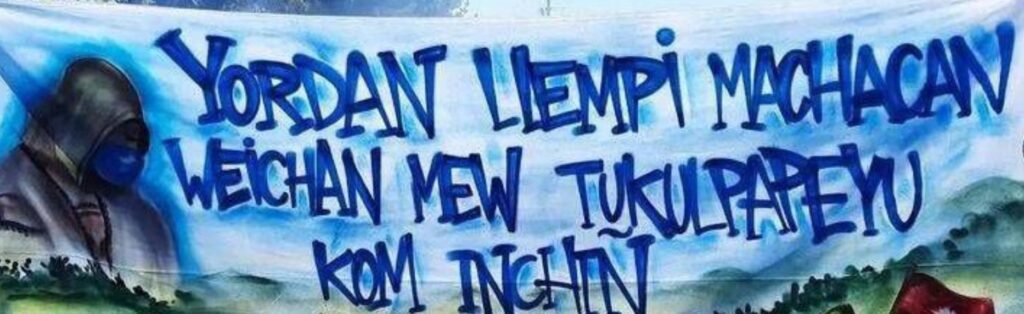 YORDAN LLEMPi MACHACAN
WEiCHAN MEW TUKULPAPEYU
KOM INCHIÑ